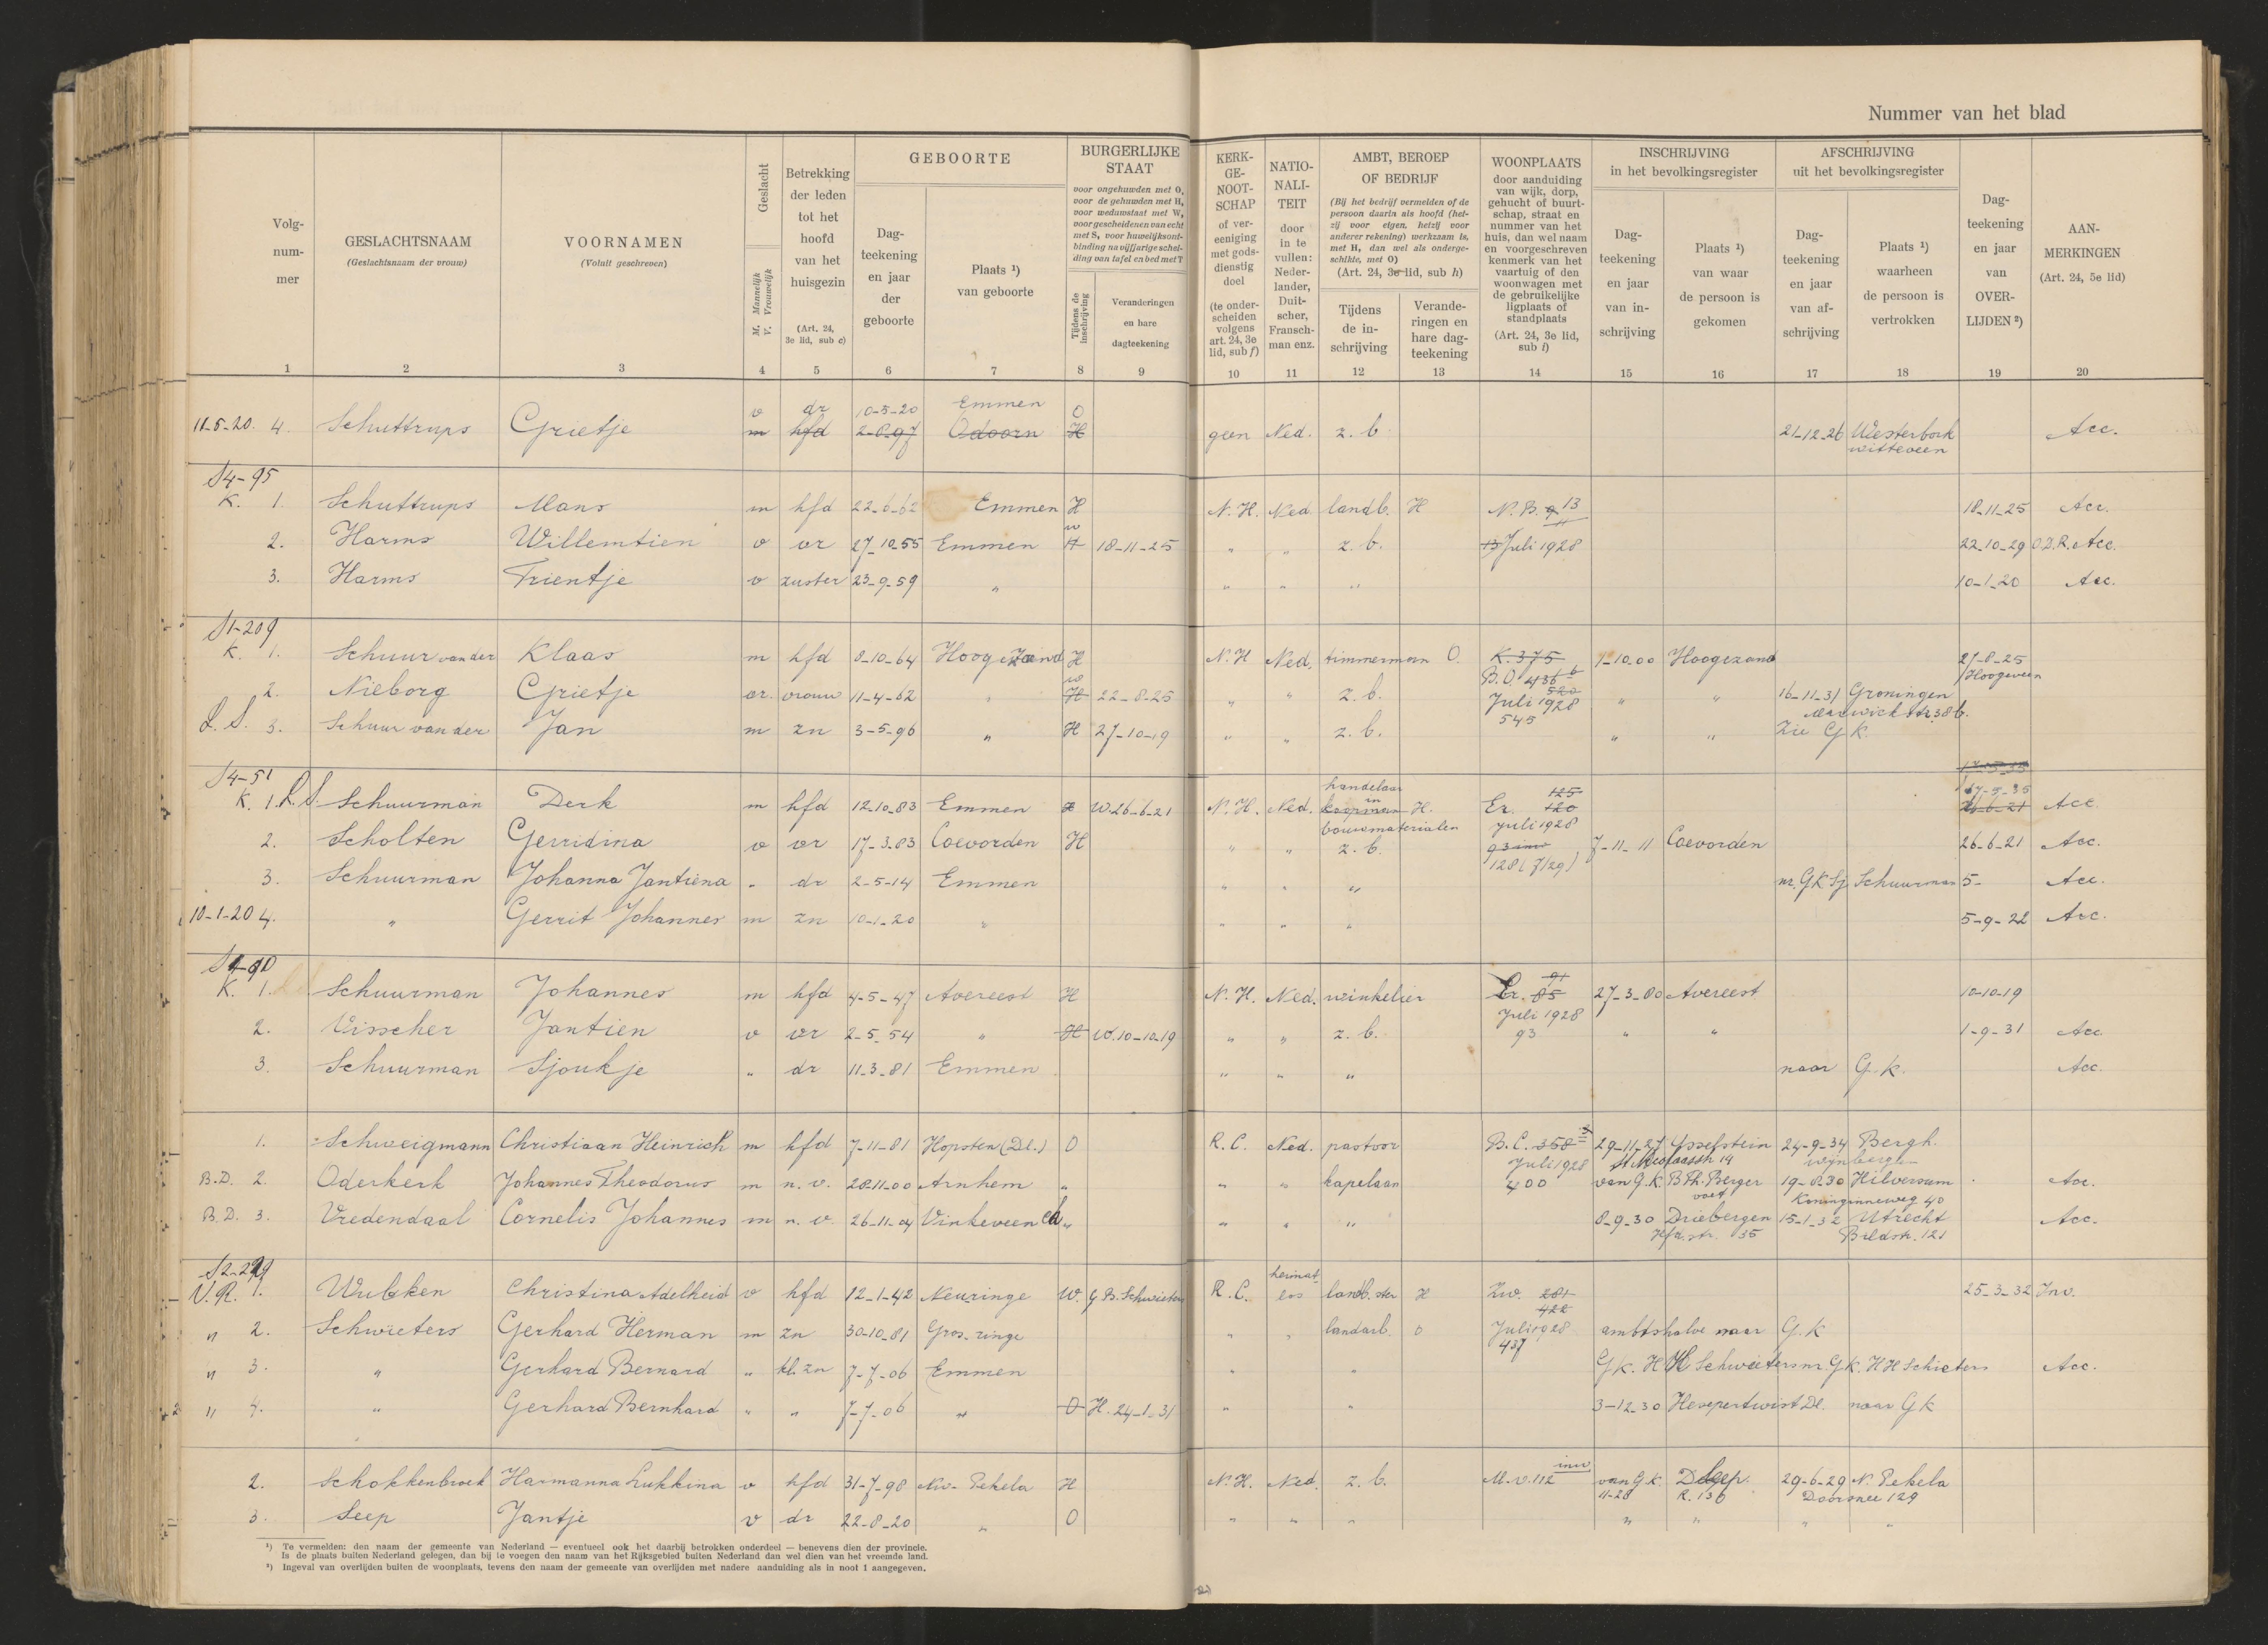 Nummer van het blad
Volg-
num-
mer
GESLACHTSNAAM
(Geslachtsnaam der vrouw)
VOORNAMEN
(Voluit geschreven)
Geslacht
M. Mannelijk
V. Vrouwelijk
Betrekking
der leden
tot het
hoofd
van het
huisgezin
(Art. 24,
3e lid, sub c)
GEBOORTE
Dag-
teekening
en jaar
der
geboorte
Plaats ¹)
van geboorte
BURGERLIJKE
STAAT
voor ongehuwden met O,
voor de gehuwden met H,
voor weduwstaat met W,
voor gescheidenen van echt
met S, voor huwelijksont-
binding na vijfjarige schei-
ding van tafel en bed met T
Tijdens de
inschrijving
Veranderingen
en hare
dagteekening
KERK-
GE-
NOOT-
SCHAP
of ver-
eeniging
met gods-
dienstig
doel
(te onder-
scheiden
volgens
art. 24, 3e
lid, sub f)
NATIO-
NALI-
TEIT
door
in te
vullen:
Neder-
lander,
Duit-
scher,
Fransch-
man enz.
AMBT, BEROEP
OF BEDRIJF
(Bij het bedrijf vermelden of de
persoon daarin als hoofd (het-
zij voor eigen, hetzij voor
anderer rekening) werkzaam is,
met H, dan wel als onderge-
schikte, met O)
(Art. 24, 3e lid, sub h)
Tijdens
de in-
schrijving
Verande-
ringen en
hare dag-
teekening
WOONPLAATS
door aanduiding
van wijk, dorp,
gehucht of buurt-
schap, straat en
nummer van het
huis, dan wel naam
en voorgeschreven
kenmerk van het
vaartuig of den
woonwagen met
de gebruikelijke
ligplaats of
standplaats
(Art. 24, 3e lid,
sub i)
INSCHRIJVING
in het bevolkingsregister
Dag-
teekening
en jaar
van in-
schrijving
Plaats ¹)
van waar
de persoon is
gekomen
AFSCHRIJVING
uit het bevolkingsregister
Dag-
teekening
en jaar
van af-
schrijving
Plaats ¹)
waarheen
de persoon is
vertrokken
Dag-
teekening
en jaar
van
OVER-
LIJDEN ²)
AAN-
MERKINGEN
(Art. 24, 5e lid)
1 2 3 4 5 6 7 8 9 10 11 12 13 14 15 16 17 18 19 20
v dr 10-5-20 Emmen O
11-5-20. 4. Schuttrups Grietje m hfd 2-8-97 Odoorn H geen Ned. z. b. 21-12-26 Westerbork Acc.
witteveen
S4-95
K. 1. Schuttrups Mans m hfd 22-6-62 Emmen H N. H. Ned. landb. H N. B. 9 13 18-11-25 Acc.
w
2. Harms Willemtien v vr 27-10-55 Emmen H 18-11-25 " " z. b. 13 Juli 1928 22-10-29 O.D.R. Acc.
3. Harms Trientje v zuster 23-9-59 " " " " 10-1-20 Acc.
S1-209
K. 1. Schuur van der Klaas m hfd 8-10-64 Hoogezand H N. H Ned. timmerman O. K. 375 1-10-00 Hoogezand 27-8-25
B. O 436 b Hoogeveen
w 520
2. Nieborg Grietje vr. vrouw 11-4-62 " H 22-8-25 " " z. b. Juli 1928 " " 16-11-31 Groningen
545
L. S. 3. Schuur van der Jan m zn 3-5-96 " H 27-10-19 " " z. b. " " Zie G K.
S4-51
handelaar 125 17-5-35
K. 1. L. S. Schuurman Derk m hfd 12-10-83 Emmen H W. 26-6-21 N. H. Ned. koopman in H. Er. 120 26-6-21 Acc
bouwmaterialen Juli 1928
2. Scholten Gerridina v vr 17-3-83 Coevorden H " " z. b. 93 7-11-11 Coevorden 26-6-21 Acc.
128 (7/29)
3. Schuurman Johanna Jantiena " dr 2-5-14 Emmen " " " nr. GK Sj Schuurman 5- Acc.
10-1-20 4. " Gerrit Johannes m zn 10-1-20 " " " " 5-9-22 Acc.
91
K. 1. Schuurman Johannes m hfd 4-5-47 Avereest H N. H. Ned. winkelier Er. 85 27-3-80 Avereest 10-10-19
Juli 1928
2. Visscher Jantien v vr 2-5-54 " H W. 10-10-19 " " z. b. 93 " " 1-9-31 Acc.
3. Schuurman Sjoukje " dr 11-3-81 Emmen " " " naar G. K. Acc.
1. Schweigmann Christiaan Heinrich m hfd 7-11-81 Hopsten (Dl.) O R. C. Ned. pastoor B. C. 358 29-11-27 Ysselstein 24-9-34 Bergh.
Juli 1928
B.D. 2. Oderkerk Johannes Theodorus m n. v. 28-11-00 Arnhem " " " kapelaan 400 van G.K. B Th. Berger 19-8-30 Hilversum Acc.
voet Koninginneweg 40
B.D. 3. Vredendaal Cornelis Johannes m n. v. 26-11-04 Vinkeveen ca " " " " 8-9-30 Driebergen 15-1-32 Utrecht Acc.
Hfd. str. 35 Bildstr. 121
heimat-
V.R. 1. Wubken Christina Adelheid v hfd 12-1-42 Neuringe W. G B. Schwieters R. C. los landb. ster H Zw. 281 25-3-32 Inv.
422
" 2. Schwieters Gerhard Herman m zn 30-10-81 Gros-ringe " " landarb. O Juli 1928 ambtshalve naar G. K
437
" 3. " Gerhard Bernard " kl. zn 7-7-06 Emmen " " GK. H H Schwieters nr. GK. H H Schieters Acc.
" 4. " Gerhard Bernhard " " 7-7-06 " O H. 24-1-31 " " 3-12-30 Hesepertwist Dl. naar G K
2. Schokkenbroek Harmanna Lukkina v hfd 31-7-98 Niw-Pekela H N. H. Ned. z. b. M. v. 112 van G.K. 29-6-29 N. Pekela
11-28 R. 136 Doorsnee 129
3. Seep Jantje v dr 22-8-20 " O " " " " " " "
¹) Te vermelden: den naam der gemeente van Nederland — eventueel ook het daarbij betrokken onderdeel — benevens dien der provincie.
Is de plaats buiten Nederland gelegen, dan bij te voegen den naam van het Rijksgebied buiten Nederland dan wel dien van het vreemde land.
²) Ingeval van overlijden buiten de woonplaats, tevens den naam der gemeente van overlijden met nadere aanduiding als in noot 1 aangegeven.